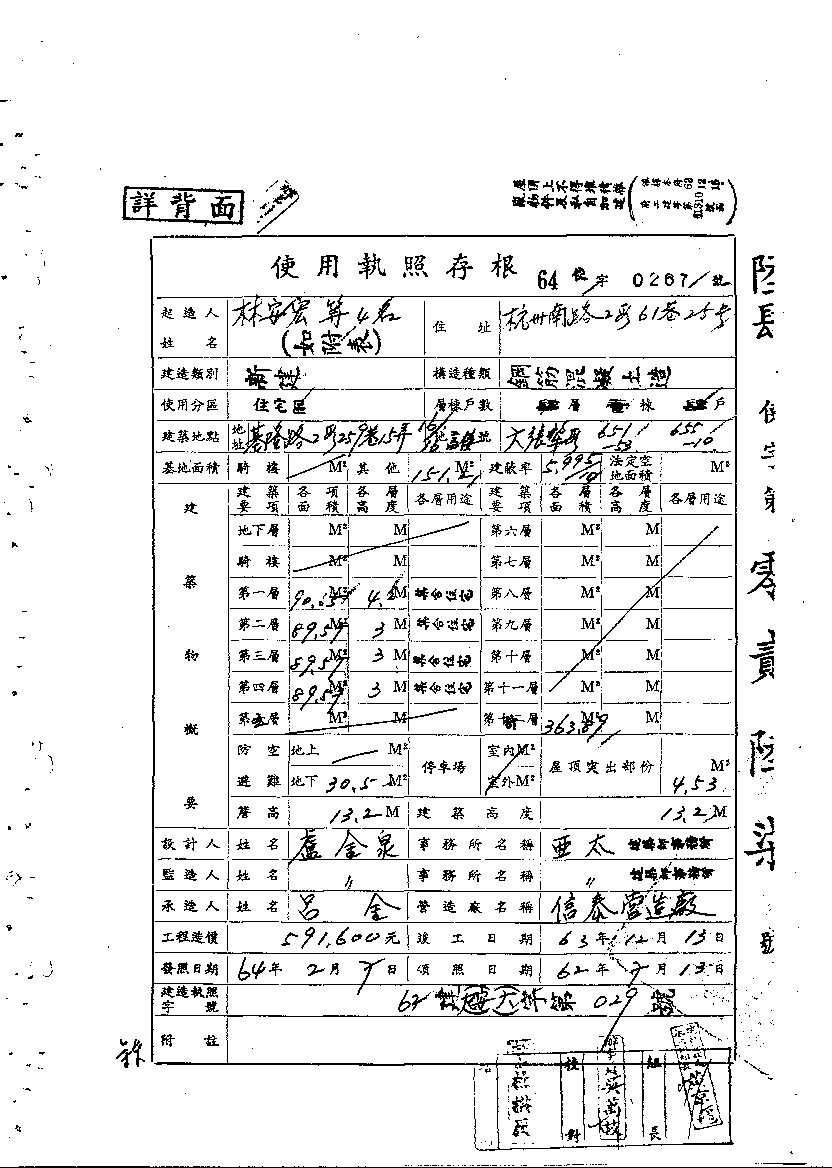 詳背面
屋頂上不得堆積
使用執照存根 64 使字 0267 號
起造人姓名 林安宏等4名 (如附表) 住址 杭州南路2段61巷25号
建造類別 新建 構造種類 鋼筋混凝土造
使用分區 住宅區 層棟戶數 層 棟 戶
建築地點 地址 基隆路2段259巷15弄 地號
基地面積 騎樓 M² 其他 151.21 M² 建蔽率 法定空地面積 M²
建築物概要 建築要項 各項面積 各層高度 各層用途 建築要項 各層面積 各層高度 各層用途
地下層 M² M 第六層 M² M
騎樓 M² M 第七層 M² M
第一層 M² M 集合住宅 第八層 M² M
第二層 89.59 M² 3 M 集合住宅 第九層 M² M
第三層 89.59 M² 3 M 集合住宅 第十層 M² M
第四層 89.59 M² 3 M 集合住宅 第十一層 M² M
第五層 M² M 363.89 M²
防空避難 地上 M² 停車場 室內 M² 屋頂突出部份 M²
地下 30.5 M² 室外 M² 4.53
簷高 13.2 M 建築高度 13.2 M
設計人 姓名 盧金泉 事務所名稱 亞太建築師事務所
監造人 姓名 〃 事務所名稱 〃 建築師事務所
承造人 姓名 呂金 營造廠名稱 信泰營造廠
工程造價 591,600元 竣工日期 63年12月13日
發照日期 64年2月7日 領照日期 62年7月13日
建造執照字號 62 029 號
附註
校對
組長
使字第零貳陸柒號